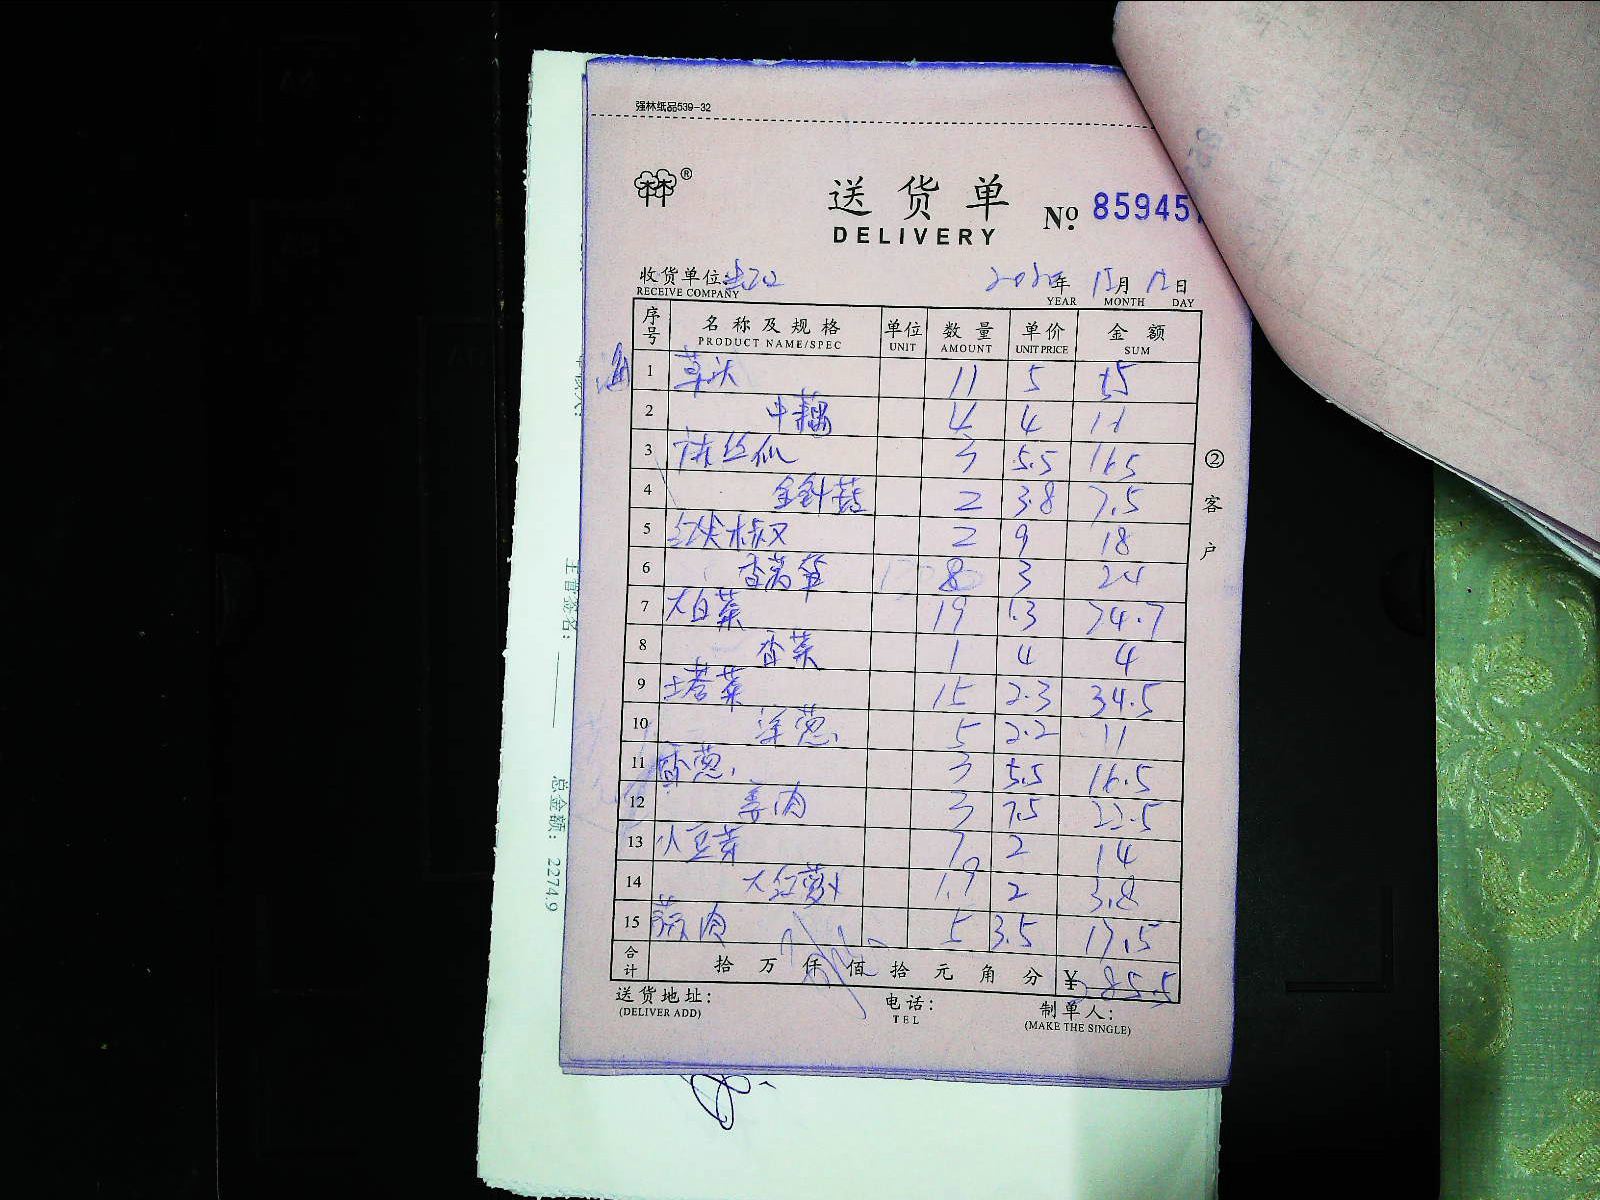 强林纸品539-32
林林®
送货单
DELIVERY
No. 859457
收货单位: 年 月 日
RECEIVE COMPANY YEAR MONTH DAY
序号 名称及规格 单位 数量 单价 金额
PRODUCT NAME/SPEC UNIT AMOUNT UNIT PRICE SUM
1 草头 11 5 55
2 中藕 4 4
3 3 5.5 16.5
4 金针菇 2 3.8 7.5
5 红尖椒 2 9 18
6 香莴笋 8 3 24
7 大白菜 19 1.3 24.7
8 香菜 1 4 4
9 塔菜 15 2.3 34.5
10 洋葱 5 2.2 11
11 香葱 3 5.5 16.5
12 姜肉 3 7.5 22.5
13 小豆芽 7 2 14
14 大红萝卜 1.9 2 3.8
15 5 3.5 17.5
合计 拾 万 仟 佰 拾 元 角 分 ¥ 285.5
送货地址: 电话: 制单人:
(DELIVER ADD) TEL (MAKE THE SINGLE)
②客户
主管签名:
总金额: 2274.9